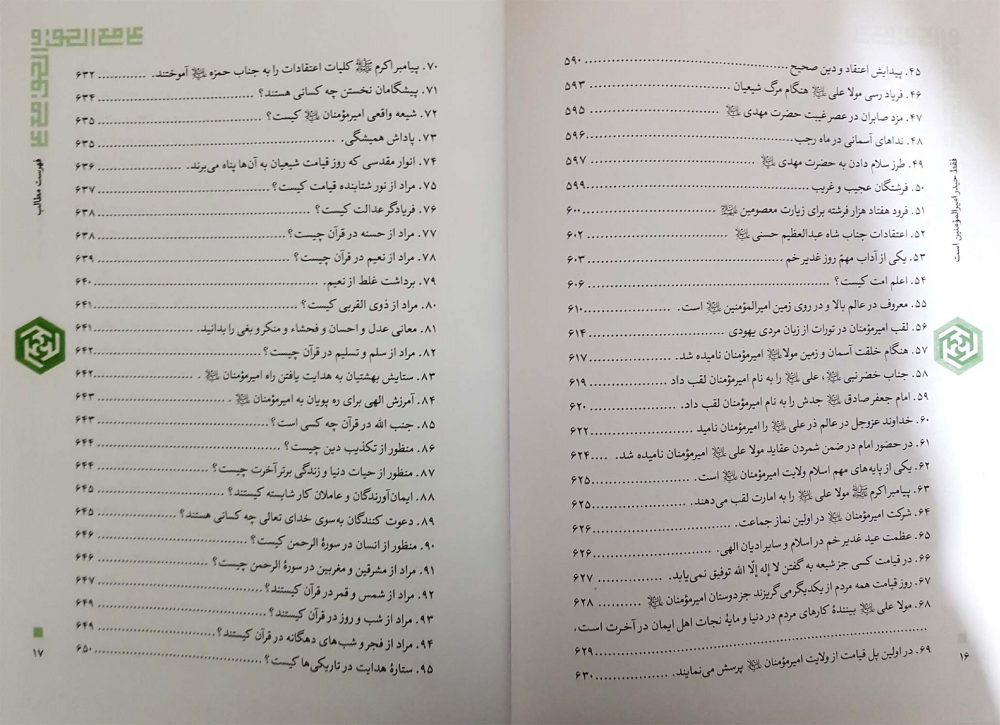 فقط حیدر امیرالمؤمنین است
۴۵. پیدایش اعتقاد و دین صحیح ........ ۵۹۰
۴۶. فریاد رسی مولا علی علیه‌السلام هنگام مرگ شیعیان ........ ۵۹۳
۴۷. مزد صابران در عصر غیبت حضرت مهدی علیه‌السلام ........ ۵۹۵
۴۸. نداهای آسمانی در ماه رجب ........ ۵۹۶
۴۹. طرز سلام دادن به حضرت مهدی علیه‌السلام ........ ۵۹۷
۵۰. فرشتگان عجیب و غریب ........ ۵۹۹
۵۱. فرود هفتاد هزار فرشته برای زیارت معصومین علیهم‌السلام ........ ۶۰۰
۵۲. اعتقادات جناب شاه عبدالعظیم حسنی علیه‌السلام ........ ۶۰۲
۵۳. یکی از آداب مهمّ روز غدیر خم ........ ۶۰۳
۵۴. اعلم امت کیست؟ ........ ۶۰۶
۵۵. معروف در عالم بالا و در روی زمین امیرالمؤمنین علیه‌السلام است. ........ ۶۱۰
۵۶. لقب امیرمؤمنان در تورات از زبان مردی یهودی ........ ۶۱۴
۵۷. هنگام خلقت آسمان و زمین مولا علیه‌السلام امیرمؤمنان نامیده شد. ........ ۶۱۷
۵۸. جناب خضر نبی علیه‌السلام، علی علیه‌السلام را به نام امیرمؤمنان لقب داد ........ ۶۱۹
۵۹. امام جعفر صادق علیه‌السلام جدش را به نام امیرمؤمنان لقب داد. ........ ۶۲۰
۶۰. خداوند عزوجل در عالم ذر علی علیه‌السلام را امیرمؤمنان نامید ........ ۶۲۲
۶۱. در حضور امام در ضمن شمردن عقاید مولا علی علیه‌السلام امیرمؤمنان نامیده شد. ........ ۶۲۴
۶۲. یکی از پایه‌های مهم اسلام ولایت امیرمؤمنان علیه‌السلام است. ........ ۶۲۵
۶۳. پیامبر اکرم ﷺ مولا علی علیه‌السلام را به امارت لقب می‌دهند. ........ ۶۲۵
۶۴. شرکت امیرمؤمنان علیه‌السلام در اولین نماز جماعت. ........ ۶۲۶
۶۵. عظمت عید غدیر خم در اسلام و سایر ادیان الهی. ........ ۶۲۶
۶۶. در قیامت کسی جز شیعه به گفتن لا إله إلّا الله توفیق نمی‌یابد. ........ ۶۲۷
۶۷. روز قیامت همه مردم از یکدیگر می‌گریزند جز دوستان امیرمؤمنان علیه‌السلام ........ ۶۲۸
۶۸. مولا علی علیه‌السلام بینندهٔ کارهای مردم در دنیا و مایهٔ نجات اهل ایمان در آخرت است.
........ ۶۲۹
۶۹. در اولین پل قیامت از ولایت امیرمؤمنان علیه‌السلام پرسش می‌نمایند. ........ ۶۳۰
۱۶
فهرست مطالب
۷۰. پیامبر اکرم ﷺ کلیات اعتقادات را به جناب حمزه علیه‌السلام آموختند. ........ ۶۳۲
۷۱. پیشگامان نخستن چه کسانی هستند؟ ........ ۶۳۴
۷۲. شیعه واقعی امیرمؤمنان علیه‌السلام کیست؟ ........ ۶۳۵
۷۳. پاداش همیشگی. ........ ۶۳۵
۷۴. انوار مقدسی که روز قیامت شیعیان به آن‌ها پناه می‌برند. ........ ۶۳۶
۷۵. مراد از نور شتابنده قیامت کیست؟ ........ ۶۳۷
۷۶. فریادگر عدالت کیست؟ ........ ۶۳۸
۷۷. مراد از حسنه در قرآن چیست؟ ........ ۶۳۸
۷۸. مراد از نعیم در قرآن چیست؟ ........ ۶۳۹
۷۹. برداشت غلط از نعیم. ........ ۶۴۰
۸۰. مراد از ذوی القربی کیست؟ ........ ۶۴۱
۸۱. معانی عدل و احسان و فحشاء و منکر و بغی را بدانید. ........ ۶۴۱
۸۲. مراد از سلم و تسلیم در قرآن چیست؟ ........ ۶۴۲
۸۳. ستایش بهشتیان به هدایت یافتن راه امیرمؤمنان علیه‌السلام. ........ ۶۴۲
۸۴. آمرزش الهی برای ره پویان به امیرمؤمنان علیه‌السلام. ........ ۶۴۳
۸۵. جنب الله در قرآن چه کسی است؟ ........ ۶۴۳
۸۶. منظور از تکذیب دین چیست؟ ........ ۶۴۴
۸۷. منظور از حیات دنیا و زندگی برتر آخرت چیست؟ ........ ۶۴۴
۸۸. ایمان‌آورندگان و عاملان کار شایسته کیستند؟ ........ ۶۴۵
۸۹. دعوت کنندگان به‌سوی خدای تعالی چه کسانی هستند؟ ........ ۶۴۵
۹۰. منظور از انسان در سورهٔ الرحمن کیست؟ ........ ۶۴۶
۹۱. مراد از مشرقین و مغربین در سورهٔ الرحمن چیست؟ ........ ۶۴۶
۹۲. مراد از شمس و قمر در قرآن کیستند؟ ........ ۶۴۷
۹۳. مراد از شب و روز در قرآن کیستند؟ ........ ۶۴۹
۹۴. مراد از فجر و شب‌های دهگانه در قرآن کیستند؟ ........ ۶۴۹
۹۵. ستارهٔ هدایت در تاریکی‌ها کیست؟ ........ ۶۵۰
۱۷